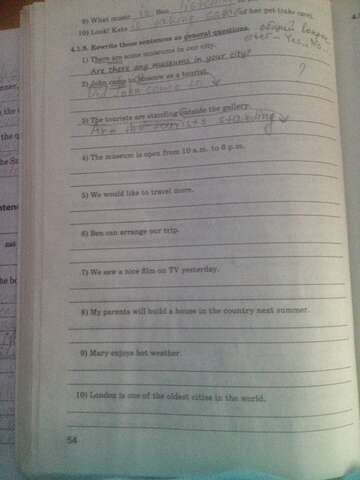 9) What music is Ben
10) Look! Kate is taking care of her pet (take care).
4.1.8. Rewrite these sentences as general questions.
общий вопрос
ответ - Yes, No..
1) There are some museums in our city.
Are there any museums in your city?
2) John came to Moscow as a tourist.
?
Did John come
3) The tourists are standing outside the gallery.
Are the tourists standing
4) The museum is open from 10 a.m. to 6 p.m.
5) We would like to travel more.
6) Ben can arrange our trip.
7) We saw a nice film on TV yesterday.
8) My parents will build a house in the country next summer.
9) Mary enjoys hot weather.
10) London is one of the oldest cities in the world.
54